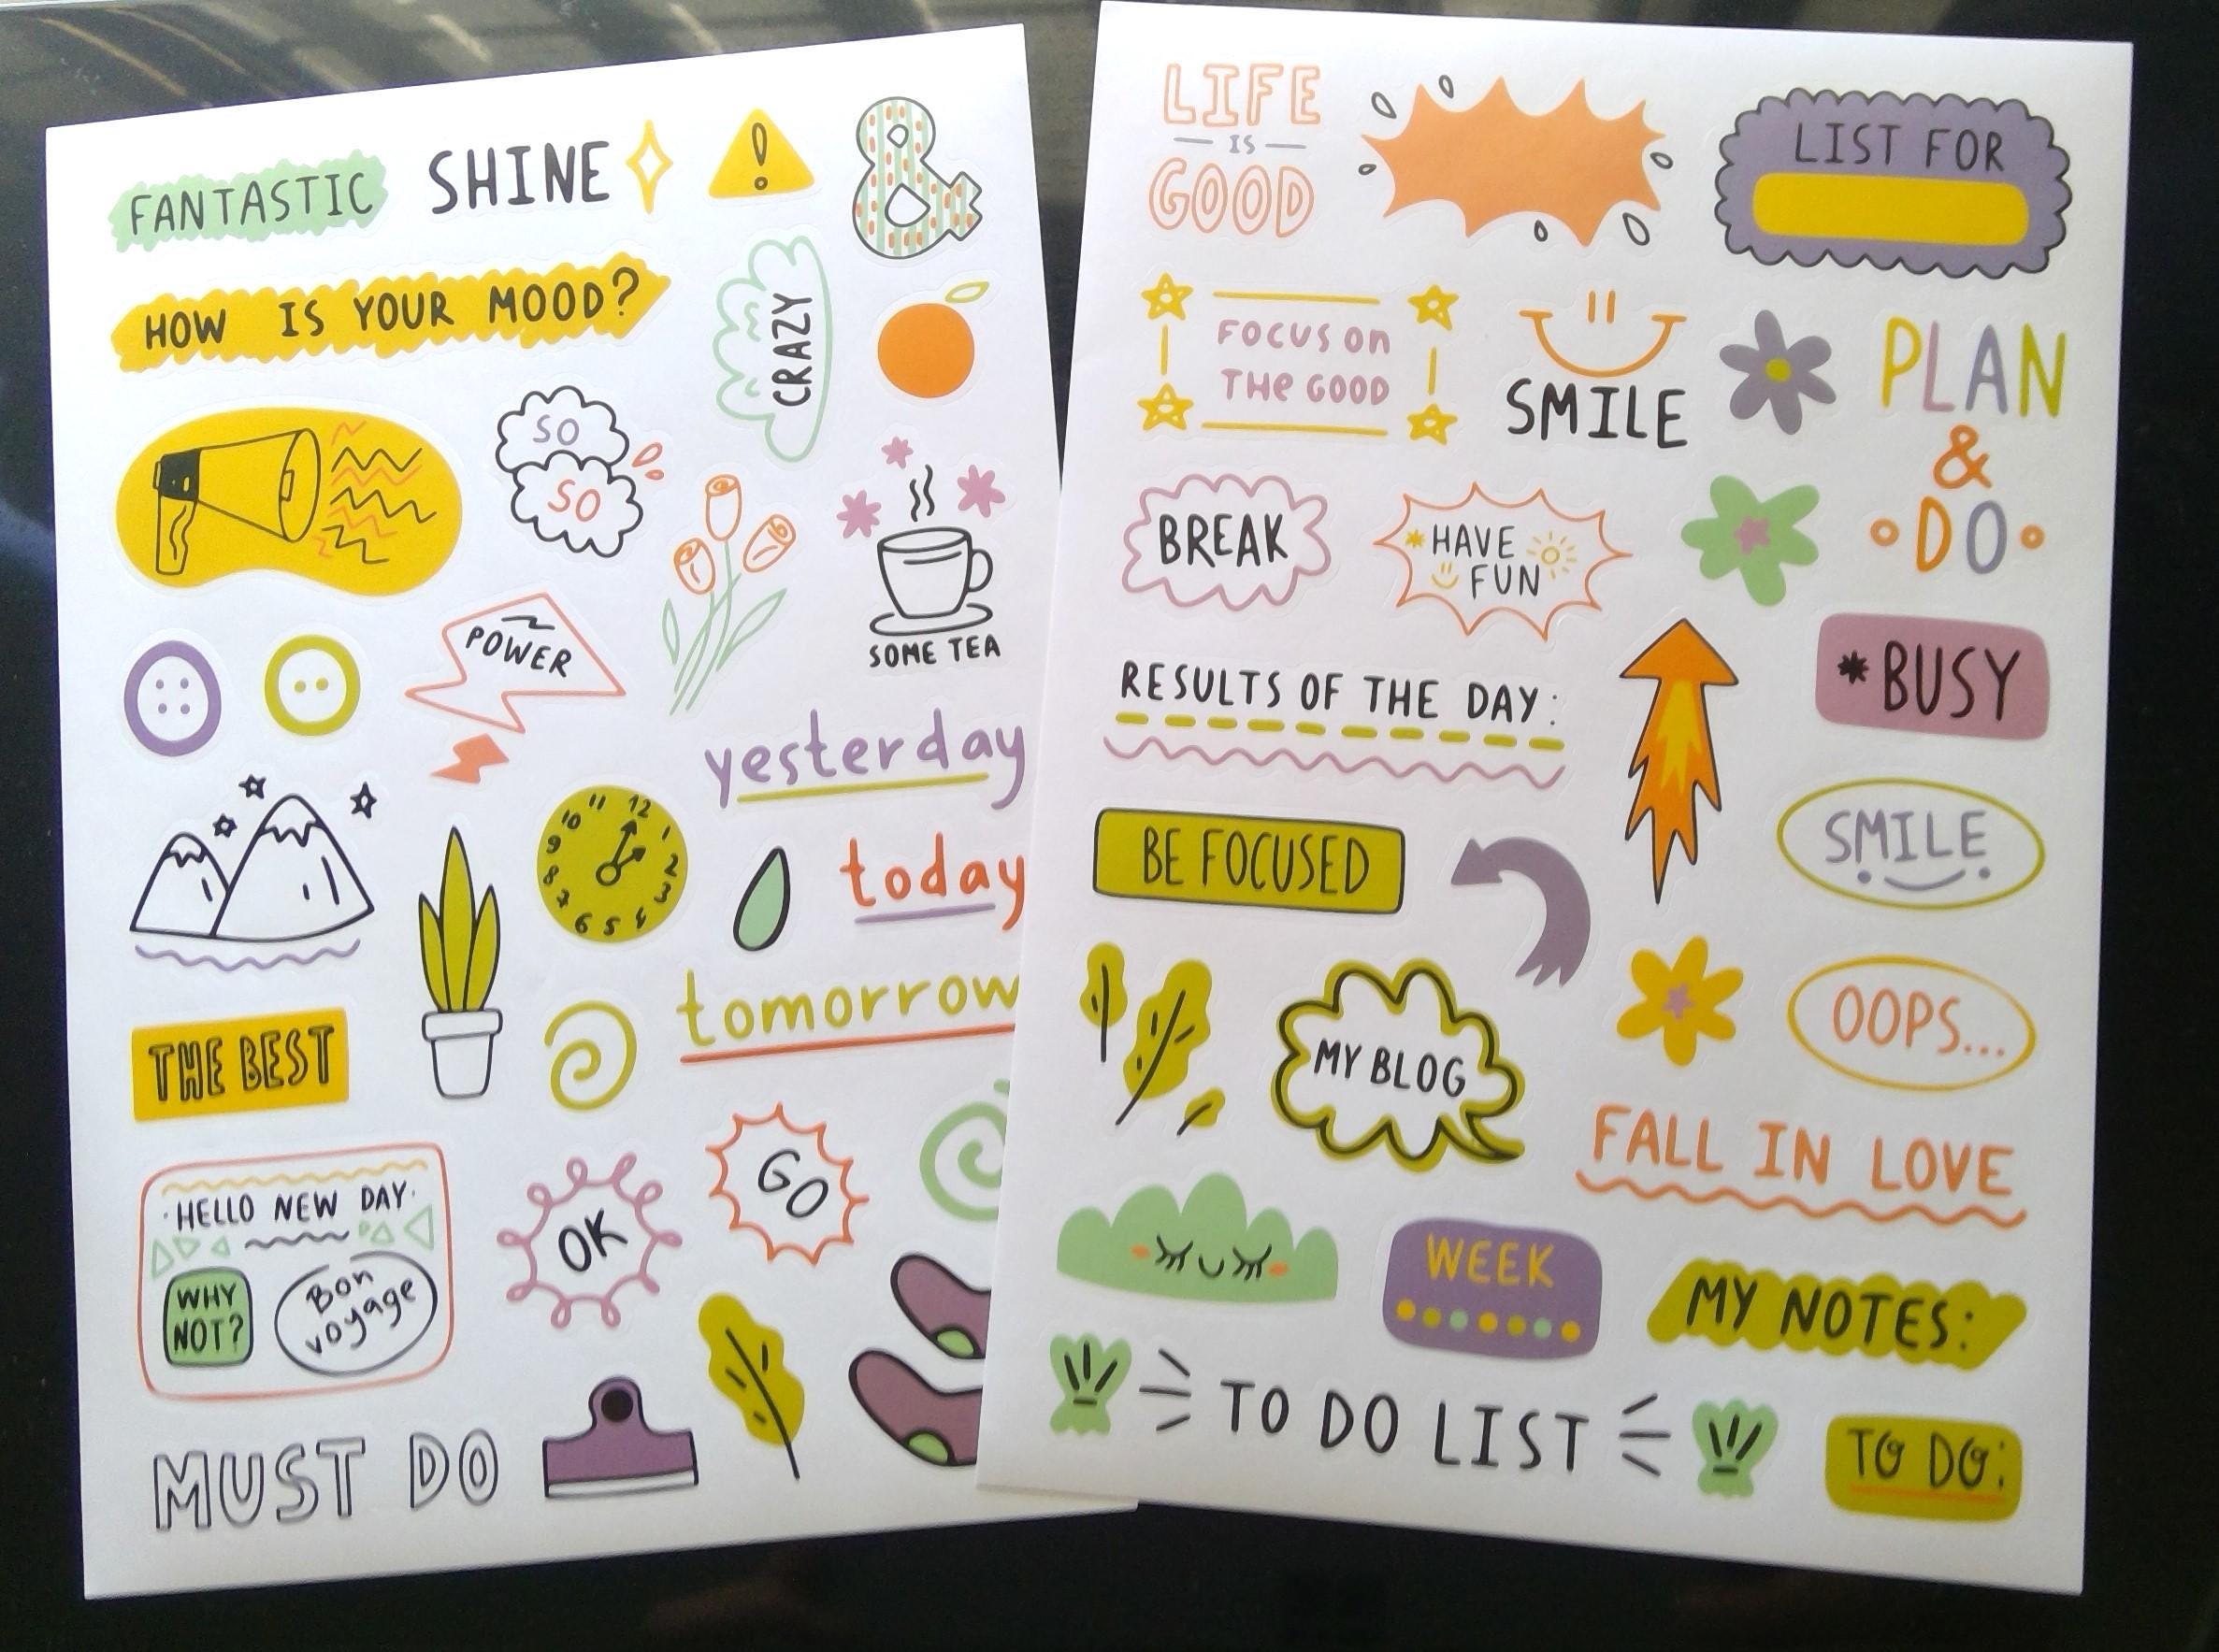 FANTASTIC
SHINE
!
&
HOW IS YOUR MOOD?
CRAZY
SO
SO
SOME TEA
POWER
yesterday
11 12 1
10 2
9 3
8 4
7 6 5
today
tomorrow
THE BEST
·HELLO NEW DAY·
WHY
NOT?
Bon
voyage
OK
GO
MUST DO
LIFE
— IS —
GOOD
LIST FOR
FOCUS On
THe GOOD
SMILE
PLAN
&
DO
BREAK
*HAVE
FUN
RESULTS OF THE DAY:
*BUSY
BE FOCUSED
SMILE
MY BLOG
OOPS...
FALL IN LOVE
WEEK
MY NOTES:
TO DO LIST
TO DO: